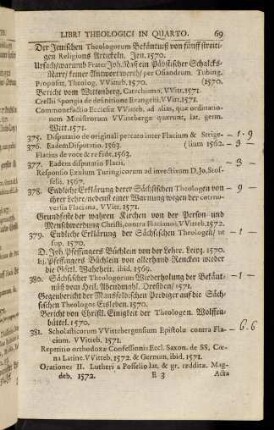 LIBRI THEOLOGICI IN QUARTO. 69
Der Jenischen Theologorum Bekäntnuß von fünff streiti-
gen Religions Artickeln. Jen. 1570.
Ursach/warumb Frater Joh. Nas ein Päbstischer Schalcks-
Narr/ keiner Antwort werth/ per Osiandrum. Tubing.
Proposit. Theolog. VViteb. 1570. (1570.
Bericht vom Wittenberg. Catechismo, VVitt. 1571.
Crellii Spongia de definitione Evangelii, VVitt. 1571.
Commonefactio Ecclesiæ VViteb. ad alias, quæ ordinatio-
nem Ministrorum VVittebergæ quærunt, lat. germ.
Witt. 1571.
375. Disputatio de originali peccato inter Flacium & Strige- 1 - 9
376. Eadem Disputatio. 1563. (lium 1562. - 3 -
Flacius de voce & re fidei. 1563.
377. Eadem disputatio Flacii. - 3 -
Responsio Exulum Turingicorum ad invectivam D. Jo. Stos-
selii. 1567.
378. Endliche Erklärung derer Sächsischen Theologen von - 9 -
ihrer Lehre/ nebenst einer Warnung wegen der con-
troversia Flaciana, VVitt. 1571.
Grundfeste der wahren Kirchen von der Person und
Menschwerdung Christi, contra Flacianos, VVitt. 1572.
379. Endliche Erklärung der Sächsischen Theologen/ ut - 1 -
sup. 1570.
D. Joh. Pfeffingers Büchlein von der Lehre. Leipz. 1570.
Ej. Pfeffingers Büchlein von allerhand Rencken wieder
die Göttl. Wahrheit. ibid. 1569.
380. Sächsischer Theologorum Wiederholung der Bekänt- - 1 -
nüs vom Heil. Abendmahl. Dresden/ 1571.
Gegenbericht der Manßfeldischen Prediger auf die Säch-
sischen Theologos. Eisleben. 1570.
Bericht von Christl. Einigkeit der Theologen. Wolffen-
büttel. 1570.
381. Scholasticorum VVittebergensium Epistola contra Fla- - 6.6
cium. VViteb. 1571.
Repetitio orthodoxæ Confessionis Eccl. Saxon. de SS. Cœ-
na Latine. VViteb. 1572. & German, ibid. 1571.
Orationes II. Lutheri a Posselio lat. & gr. reddita. Mag-
deb. 1572. E 3 Acta